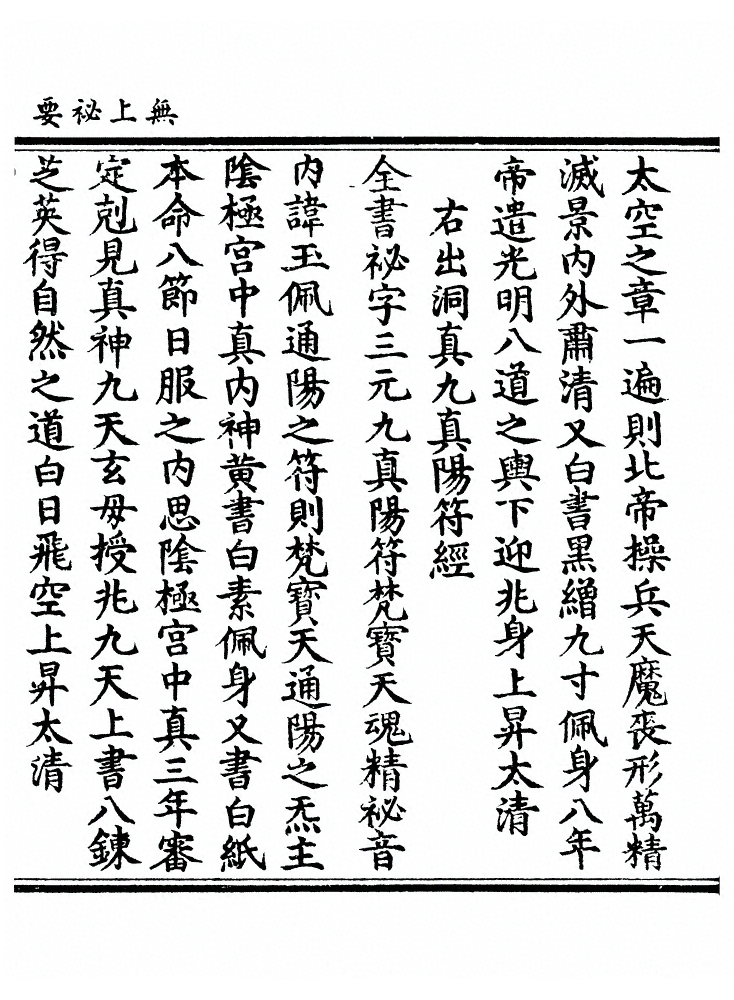 無上祕要
太空之章一遍則北帝操兵天魔喪形萬精
滅景內外肅清又白書黑繒九寸佩身八年
帝遣光明八道之輿下迎兆身上昇太清
右出洞真九真陽符經
全書祕字三元九真陽符梵寶天魂精祕音
內諱玉佩通陽之符則梵寶天通陽之炁主
陰極宮中真內神黃書白素佩身又書白紙
本命八節日服之內思陰極宮中真三年審
定剋見真神九天玄母授兆九天上書八鍊
芝英得自然之道白日飛空上昇太清